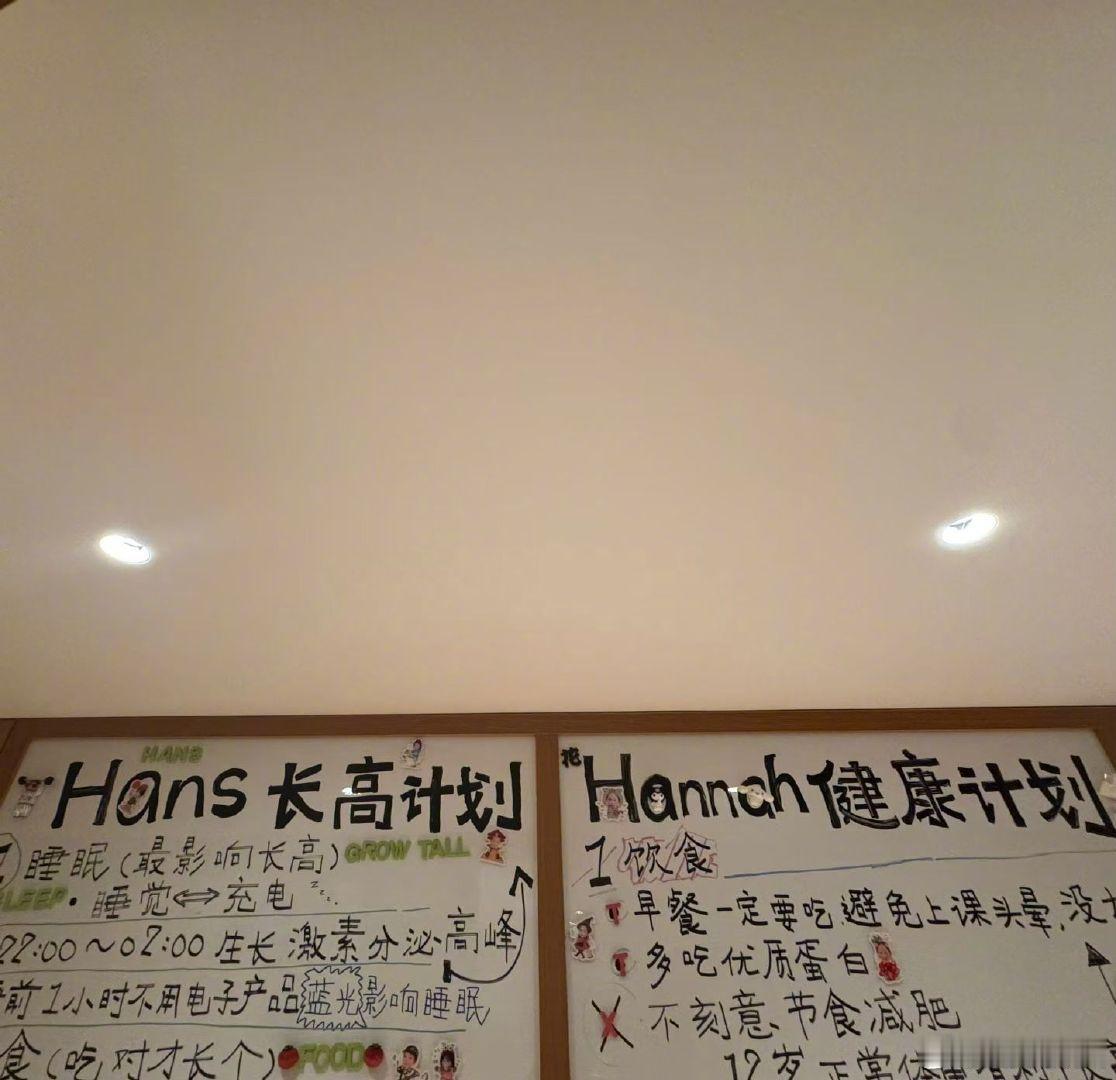 HANS
Hans 长高计划
睡眠(最影响长高) GROW TALL
SLEEP · 睡觉⇔充电 zzz
22:00~02:00 生长激素分泌高峰
前1小时不用电子产品 蓝光影响睡眠
食(吃对才长个) FOOD
花
Hannah 健康计划
1 饮食
早餐一定要吃,避免上课头晕,没
多吃优质蛋白
X 不刻意节食减肥
12岁正常体重